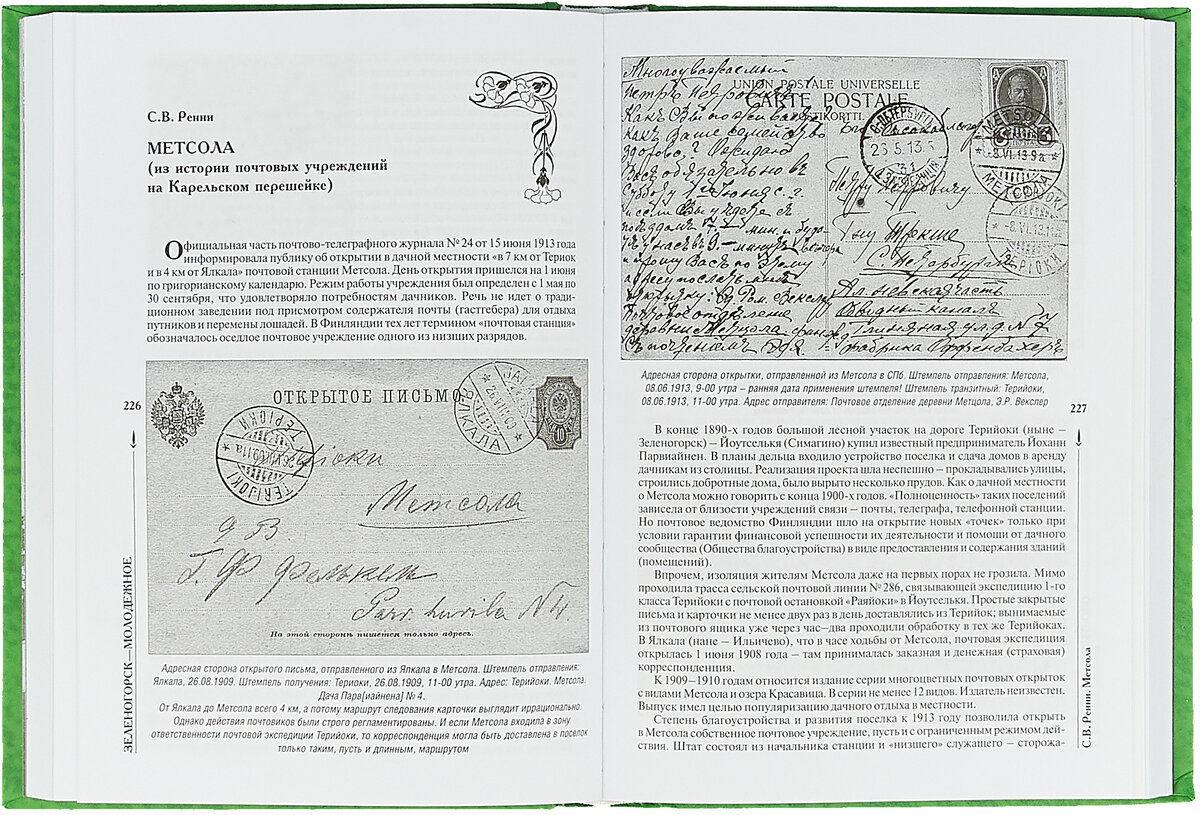 С.В. Ренни
МЕТСОЛА
(из истории почтовых учреждений
на Карельском перешейке)
Официальная часть почтово-телеграфного журнала № 24 от 15 июня 1913 года
информировала публику об открытии в дачной местности «в 7 км от Териок
и в 4 км от Ялкала» почтовой станции Метсола. День открытия пришелся на 1 июня
по григорианскому календарю. Режим работы учреждения был определен с 1 мая по
30 сентября, что удовлетворяло потребностям дачников. Речь не идет о тради-
ционном заведении под присмотром содержателя почты (гастгебера) для отдыха
путников и перемены лошадей. В Финляндии тех лет термином «почтовая станция»
обозначалось оседлое почтовое учреждение одного из низших разрядов.
ОТКРЫТОЕ ПИСЬМО
ЯЛКАЛА
ТЕРІОКИ
26.VIII.09.11a
TERIJOKI
Теріоки
Метсола
Г. Ф. Фелькель
Parv. huvila N4
На этой сторонѣ пишется только адресъ.
226
ЗЕЛЕНОГОРСК—МОЛОДЕЖНОЕ
Адресная сторона открытого письма, отправленного из Ялкала в Метсола. Штемпель отправления:
Ялкала, 26.08.1909. Штемпель получения: Териоки, 26.08.1909, 11-00 утра. Адрес: Терийоки. Метсола.
Дача Парв[иайнена] № 4.
От Ялкала до Метсола всего 4 км, а потому маршрут следования карточки выглядит иррационально.
Однако действия почтовиков были строго регламентированы. И если Метсола входила в зону
ответственности почтовой экспедиции Терийоки, то корреспонденция могла быть доставлена в поселок
только таким, пусть и длинным, маршрутом
UNION POSTALE UNIVERSELLE
CARTE POSTALE
POSTIKORTTI.
Многоуважаемый
Петръ Петровичъ
Какъ Вы поживаете
какъ Ваше семейство
здорово? Ожидаю
Васъ обязательно въ
Субботу
С.ПЕТЕРБУРГЪ
26.5.13
METSOLA
-8.VI.13.9a
МЕТСОЛА
TERIJOKI
-8.VI.13.11a
ТЕРІОКИ
Петру Петровичу
С Петербургъ
Ал. Невская часть
Обводный каналъ
Фабрика Оффенбахеръ
Почтовое отдѣленіе
деревни Метцола
Адресная сторона открытки, отправленной из Метсола в СПб. Штемпель отправления: Метсола,
08.06.1913, 9-00 утра – ранняя дата применения штемпеля! Штемпель транзитный: Терийоки,
08.06.1913, 11-00 утра. Адрес отправителя: Почтовое отделение деревни Метцола, Э.Р. Векслер
227
С.В. Ренни. Метсола
В конце 1890-х годов большой лесной участок на дороге Терийоки (ныне –
Зеленогорск) – Йоутселькя (Симагино) купил известный предприниматель Йоханн
Парвиайнен. В планы дельца входило устройство поселка и сдача домов в аренду
дачникам из столицы. Реализация проекта шла неспешно – прокладывались улицы,
строились добротные дома, было вырыто несколько прудов. Как о дачной местности
о Метсола можно говорить с конца 1900-х годов. «Полноценность» таких поселений
зависела от близости учреждений связи – почты, телеграфа, телефонной станции.
Но почтовое ведомство Финляндии шло на открытие новых «точек» только при
условии гарантии финансовой успешности их деятельности и помощи от дачного
сообщества (Общества благоустройства) в виде предоставления и содержания зданий
(помещений).
Впрочем, изоляция жителям Метсола даже на первых порах не грозила. Мимо
проходила трасса сельской почтовой линии № 286, связывающей экспедицию 1-го
класса Терийоки с почтовой остановкой «Раяйоки» в Йоутселькя. Простые закрытые
письма и карточки не менее двух раз в день доставлялись из Терийок; вынимаемые
из почтового ящика уже через час–два проходили обработку в тех же Терийоках.
В Ялкала (нане – Ильичево), что в часе ходьбы от Метсола, почтовая экспедиция
открылась 1 июня 1908 года – там принималась заказная и денежная (страховая)
корреспонденция.
К 1909–1910 годам относится издание серии многоцветных почтовых открыток
с видами Метсола и озера Красавица. В серии не менее 12 видов. Издатель неизвестен.
Выпуск имел целью популяризацию дачного отдыха в местности.
Степень благоустройства и развития поселка к 1913 году позволила открыть
в Метсола собственное почтовое учреждение, пусть и с ограниченным режимом дей-
ствия. Штат состоял из начальника станции и «низшего» служащего – сторожа-